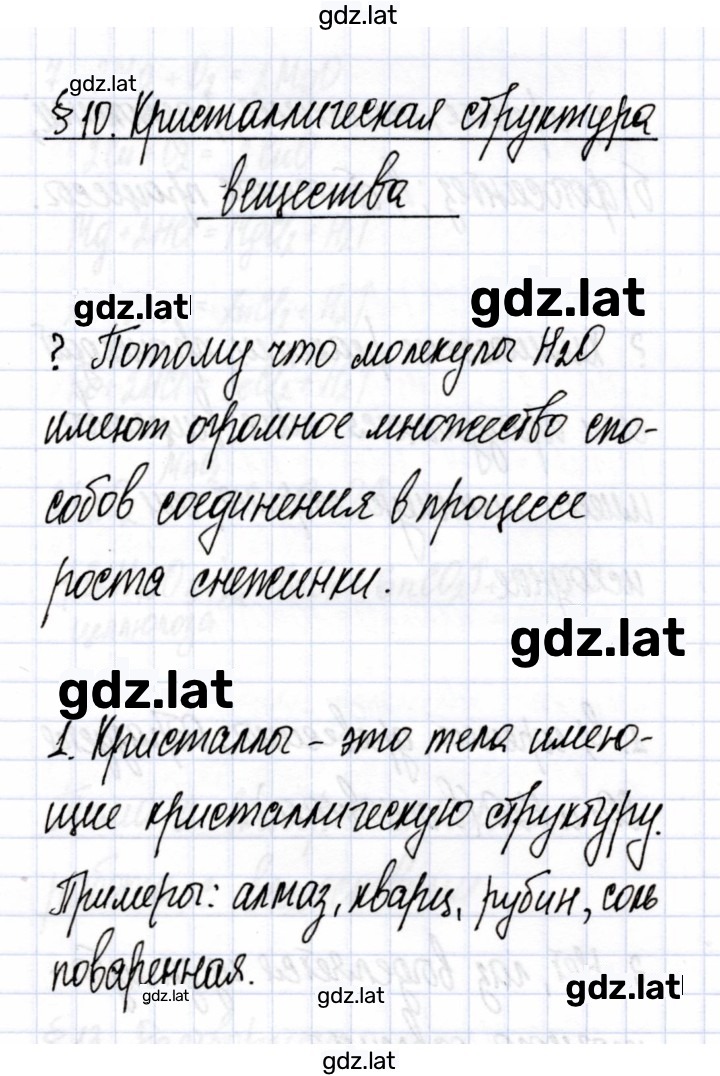 gdz.lat
gdz.lat
§ 10. Кристаллическая структура
вещества
gdz.lat
gdz.lat
? Потому что молекулы H2O
имеют огромное множество спо-
собов соединения в процессе
роста снежинки.
gdz.lat
gdz.lat
1. Кристаллы - это тела имею-
щие кристаллическую структуру.
Примеры: алмаз, кварц, рубин, соль
поваренная.
gdz.lat
gdz.lat
gdz.lat
gdz.lat